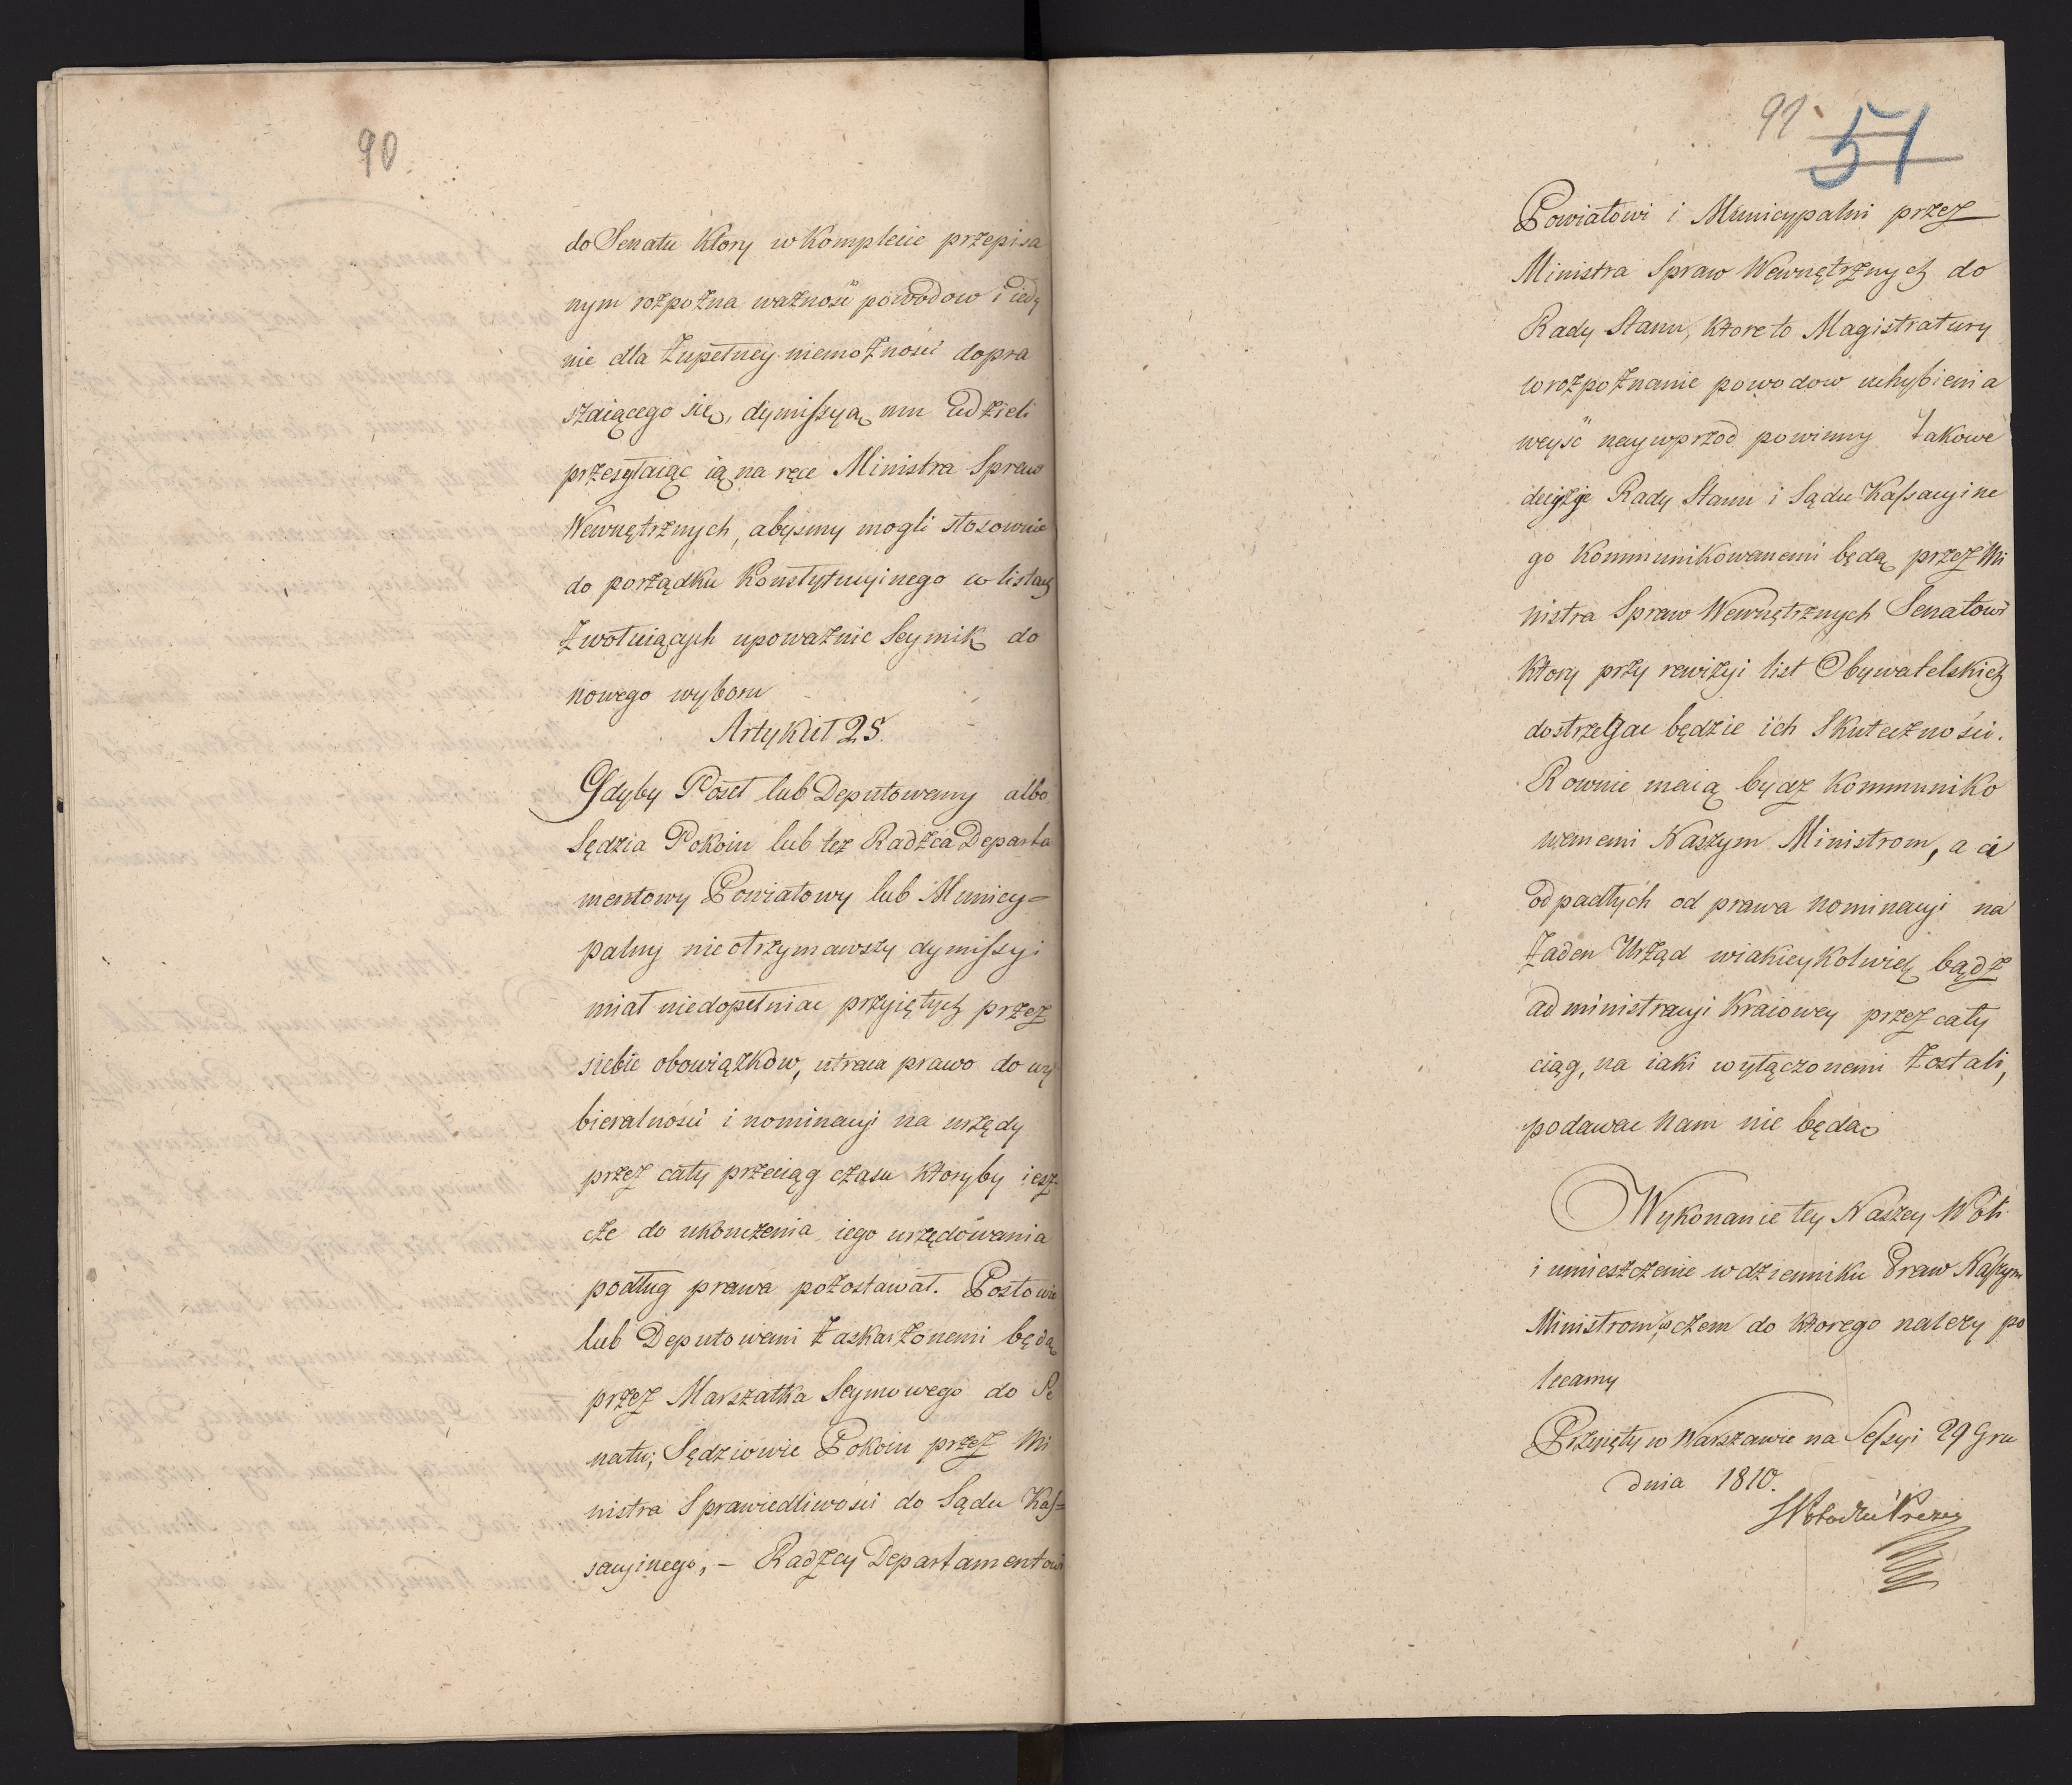 90
do Senatu ktory w komplecie przepisa
nym rozpozna ważność powodow i iedy
nie dla zupełney niemożności dopra
szaiącego się, dymissyą mu udzieli
przesyłaiąc ią na ręce Ministra Spraw
Wewnętrznych, abysmy mogli stosownie
do porządku Konstytucyinego w listach
zwołuiących upoważnic Seymik do
nowego wyboru
Artykuł 25.
Gdyby Poseł lub Deputowany albo
Sędzia Pokoiu lub też Radzca Departa
mentowy Powiatowy lub Municy=
palny nieotrzymawszy dymissyi
miał niedopełniac przyiętych przez
siebie obowiązkow, utraca prawo do wy
bieralności i nominacyi na urzędy
przez cały przeciąg czasu ktoryby iesz-
cze do ukonczenia iego urzędowania
podług prawa pozostawał. Posłowie
lub Deputowani zaskarżonemi będą
przez Marszałka Seymowego do Se
natu; Sędziowie Pokoiu przez Mi
nistra Sprawiedliwości do Sądu Kas=
sacyinego, – Radzcy Departamentowi
91.
51
Powiatowi i Municypalni przez
Ministra Spraw Wewnętrznych do
Rady Stanu, ktore to Magistratury
w rozpoznanie powodow uchybienia
weyść naywprzod powinny Takowe
decyzje Rady Stanu i Sądu Kassacyine
go kommunikowanemi będą przez Mi
nistra Spraw Wewnętrznych Senatowi
ktory przy rewizyi list Obywatelskich
dostrzegac będzie ich Skuteczności.
Rownie maią bydz kommuniko
wanemi Naszym Ministrom, a ci
odpadłych od prawa nominacyi na
żaden Urząd wiakieykolwiek bądz
administracyi Kraiowey przez cały
ciąg, na iaki wyłączonemi zostali,
podawac Nam nie będą
Wykonanie tey Naszey Woli
i umieszczenie w dzienniku Praw Naszym
Ministrom, w czem do ktorego należy po
lecamy
Przyięty w Warszawie na Sessyi 29 Gru
dnia 1810.
Prezes